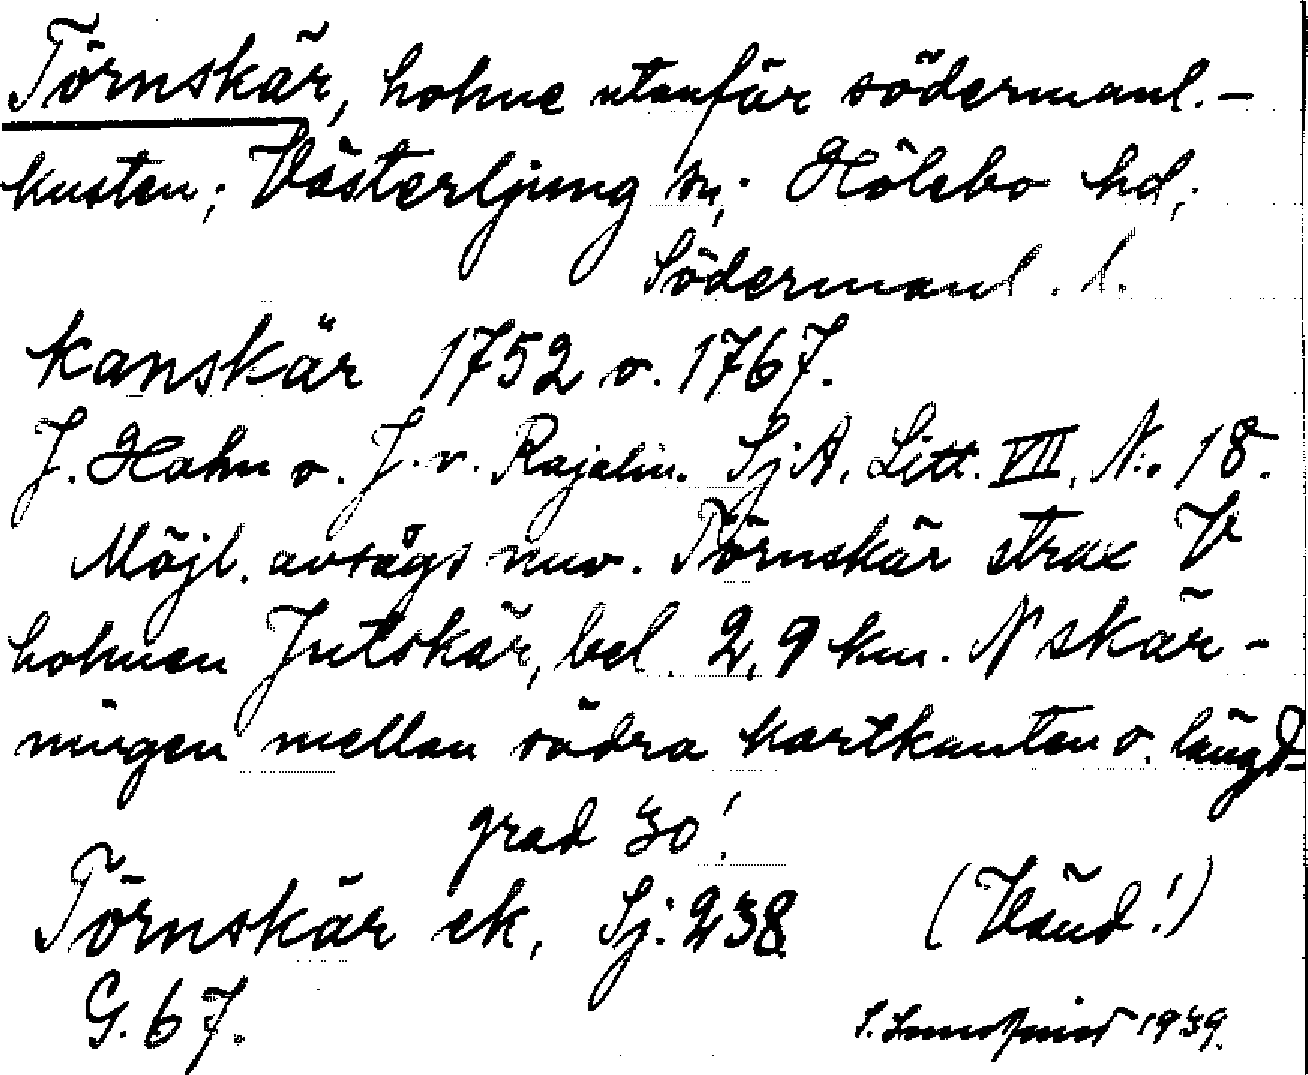 Törnskär, holme utanför södermanl.-
kusten; Västerljung sn; Hölebo hd;
Södermanl. l.
Kanskär 1752 o. 1767.
J. Hahn o. J. v. Rajalin. Sj.A. Litt. VII. N:o 18.
Möjl. avsågs nuv. Törnskär strax V
holmen Jutskär, bel. 2,9 km. N skär-
ningen mellan södra kartkanten o. längd-
grad 30'.
Törnskär ek, Sj. 238 (Vänd!)
G. 67.
1939.